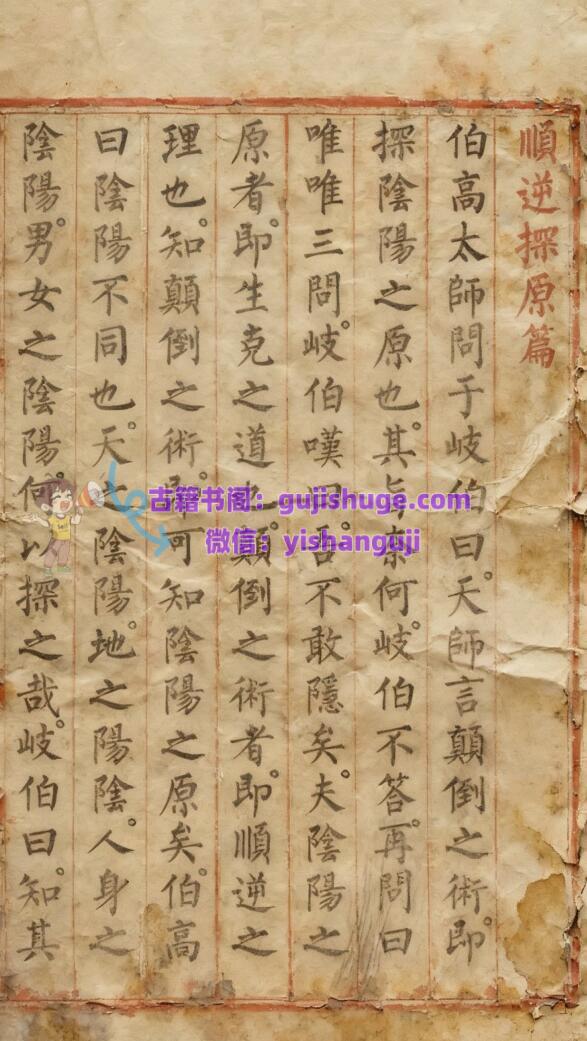 順逆探原篇
伯高太師問于岐伯曰。天師言顛倒之術。即
探陰陽之原也。其旨奈何。岐伯不答。再問曰
唯唯三問。岐伯嘆曰。吾不敢隱矣。夫陰陽之
原者。即生克之道也。顛倒之術者。即順逆之
理也。知顛倒之術。即可知陰陽之原矣。伯高
曰陰陽不同也。天之陰陽。地之陽陰。人身之
陰陽。男女之陰陽。何以探之哉。岐伯曰。知其
古籍书阁：gujishuge.com
微信：yishanguji